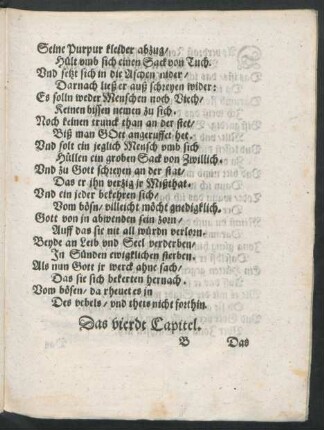 Seine Purpur kleider abzug/
Hült vmb sich einen Sack von Tuch.
Vnd setzt sich in die Aschen nider/
Darnach ließ er auß schreyen wider:
Es solln weder Menschen noch Viech/
Keinen bissen nemen zu sich.
Noch keinen trunck than an der stet/
Biß man GOtt angeruffet het.
Vnd solt ein jeglich Mensch vmb sich
Hüllen ein groben Sack von Zwillich.
Vnd zu Gott schreyen an der stat/
Das er ihn verzig jr Missthat.
Vnd ein jeder bekehren sich/
Vom bösn/ villeicht möcht gnediglich.
Gott von jn abwenden sein zorn/
Auff das sie nit all würdn verlorn.
Beyde an Leib vnd Seel verderben/
In Sünden ewigklichen sterben.
Als nun Gott jr werck ahne sach/
Das sie sich bekerten hernach.
Vom bösen/ da rheuet es jn
Des vebels/ vnd thets nicht forthin.
Das vierdt Capitel.
B Das